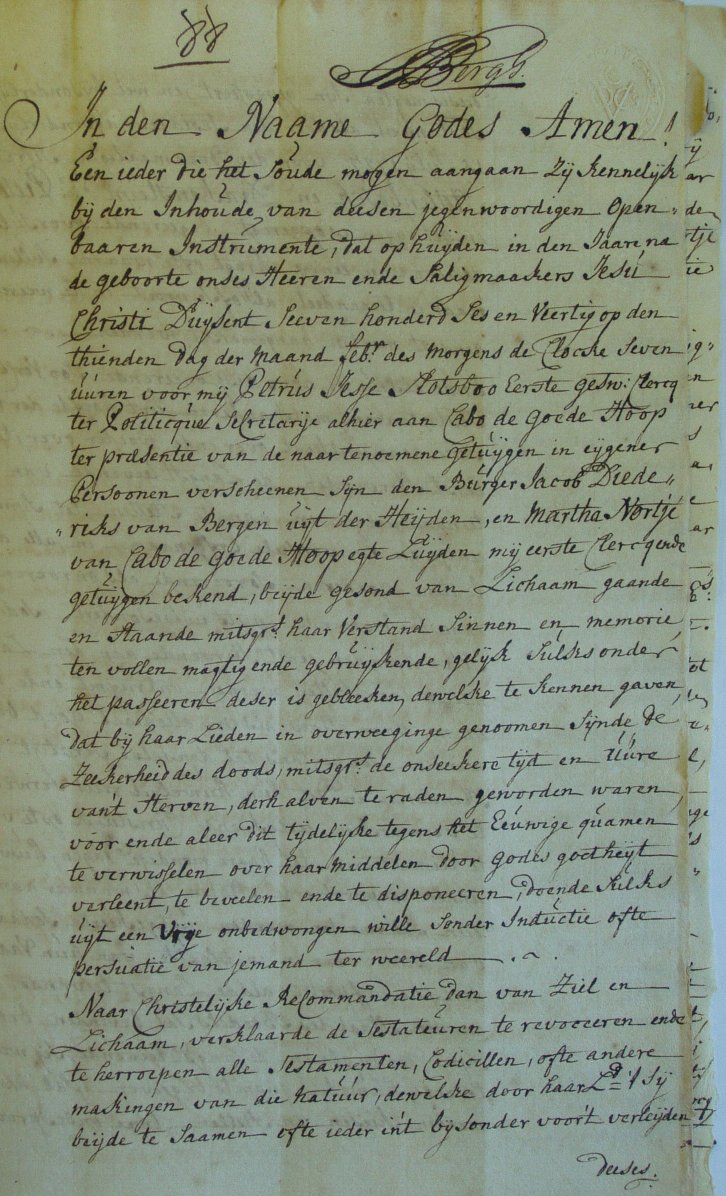 88
Bergh.
In den Naame Godes Amen!
Een ieder die het Soude mogen aangaan Zij Kennelijk
bij den Inhoude van deesen jegenwoordigen Open„
baaren Instrumente, dat op huijden in den Jaare na
de geboorte onses Heeren ende Saligmaakers Jesú
Christi Duijsent Seeven honderd Ses en Veertig op den
thienden dag der maand feb:r des morgens de Clocke Seven
uuren voor mij Petrus Jesse Slotsboo Eerste gesw: Clercq
ter Politicque Secretarije alhier aan Cabo de goede Hoop
ter præsentie van de naartenoemene getuijgen in eijgener
Persoonen verscheenen Sijn den Burger Jacob Diede„
„riks van Bergen uijt der Heijden, en Martha Nortjé
van Cabo de goede Hoop egte Luijden mij eerste Clercq ende
getuijgen bekend, beijde gesond van Lichaam gaande
en Staande mitsgrs. haar Verstand Sinnen en memorie
ten vollen magtig ende gebruijkende, gelijk Sulks onder
het passeeren deser is gebleeken, dewelke te kennen gaven
dat bij haar Lieden in overweeginge genoomen Sijnde de
Zeekerheid des doods, mitsgrs. de onseekere tijd en Uure
van't Sterven, derhalven te raden geworden waren,
voor ende aleer dit tijdelijke tegens het Eeuwige quamen
te verwisselen over haar middelen door godes goetheijt
verleent, te beveelen ende te disponeeren, doende Sulks
uijt een Vrije onbedwongen wille Sonder Inductie ofte
persuatie van jemand ter weereld
Naar Christelijke ReCommandatie dan van Ziel en
Lichaam, verklaarde de Testateuren te revoceeren ende
te herroepen alle Testamenten, Codicillen, ofte andere
maakingen van die natuur, dewelke door haar Ld: 't Sij
beijde te Saamen ofte ieder in't bijsonder voor't verleijden
deeses.